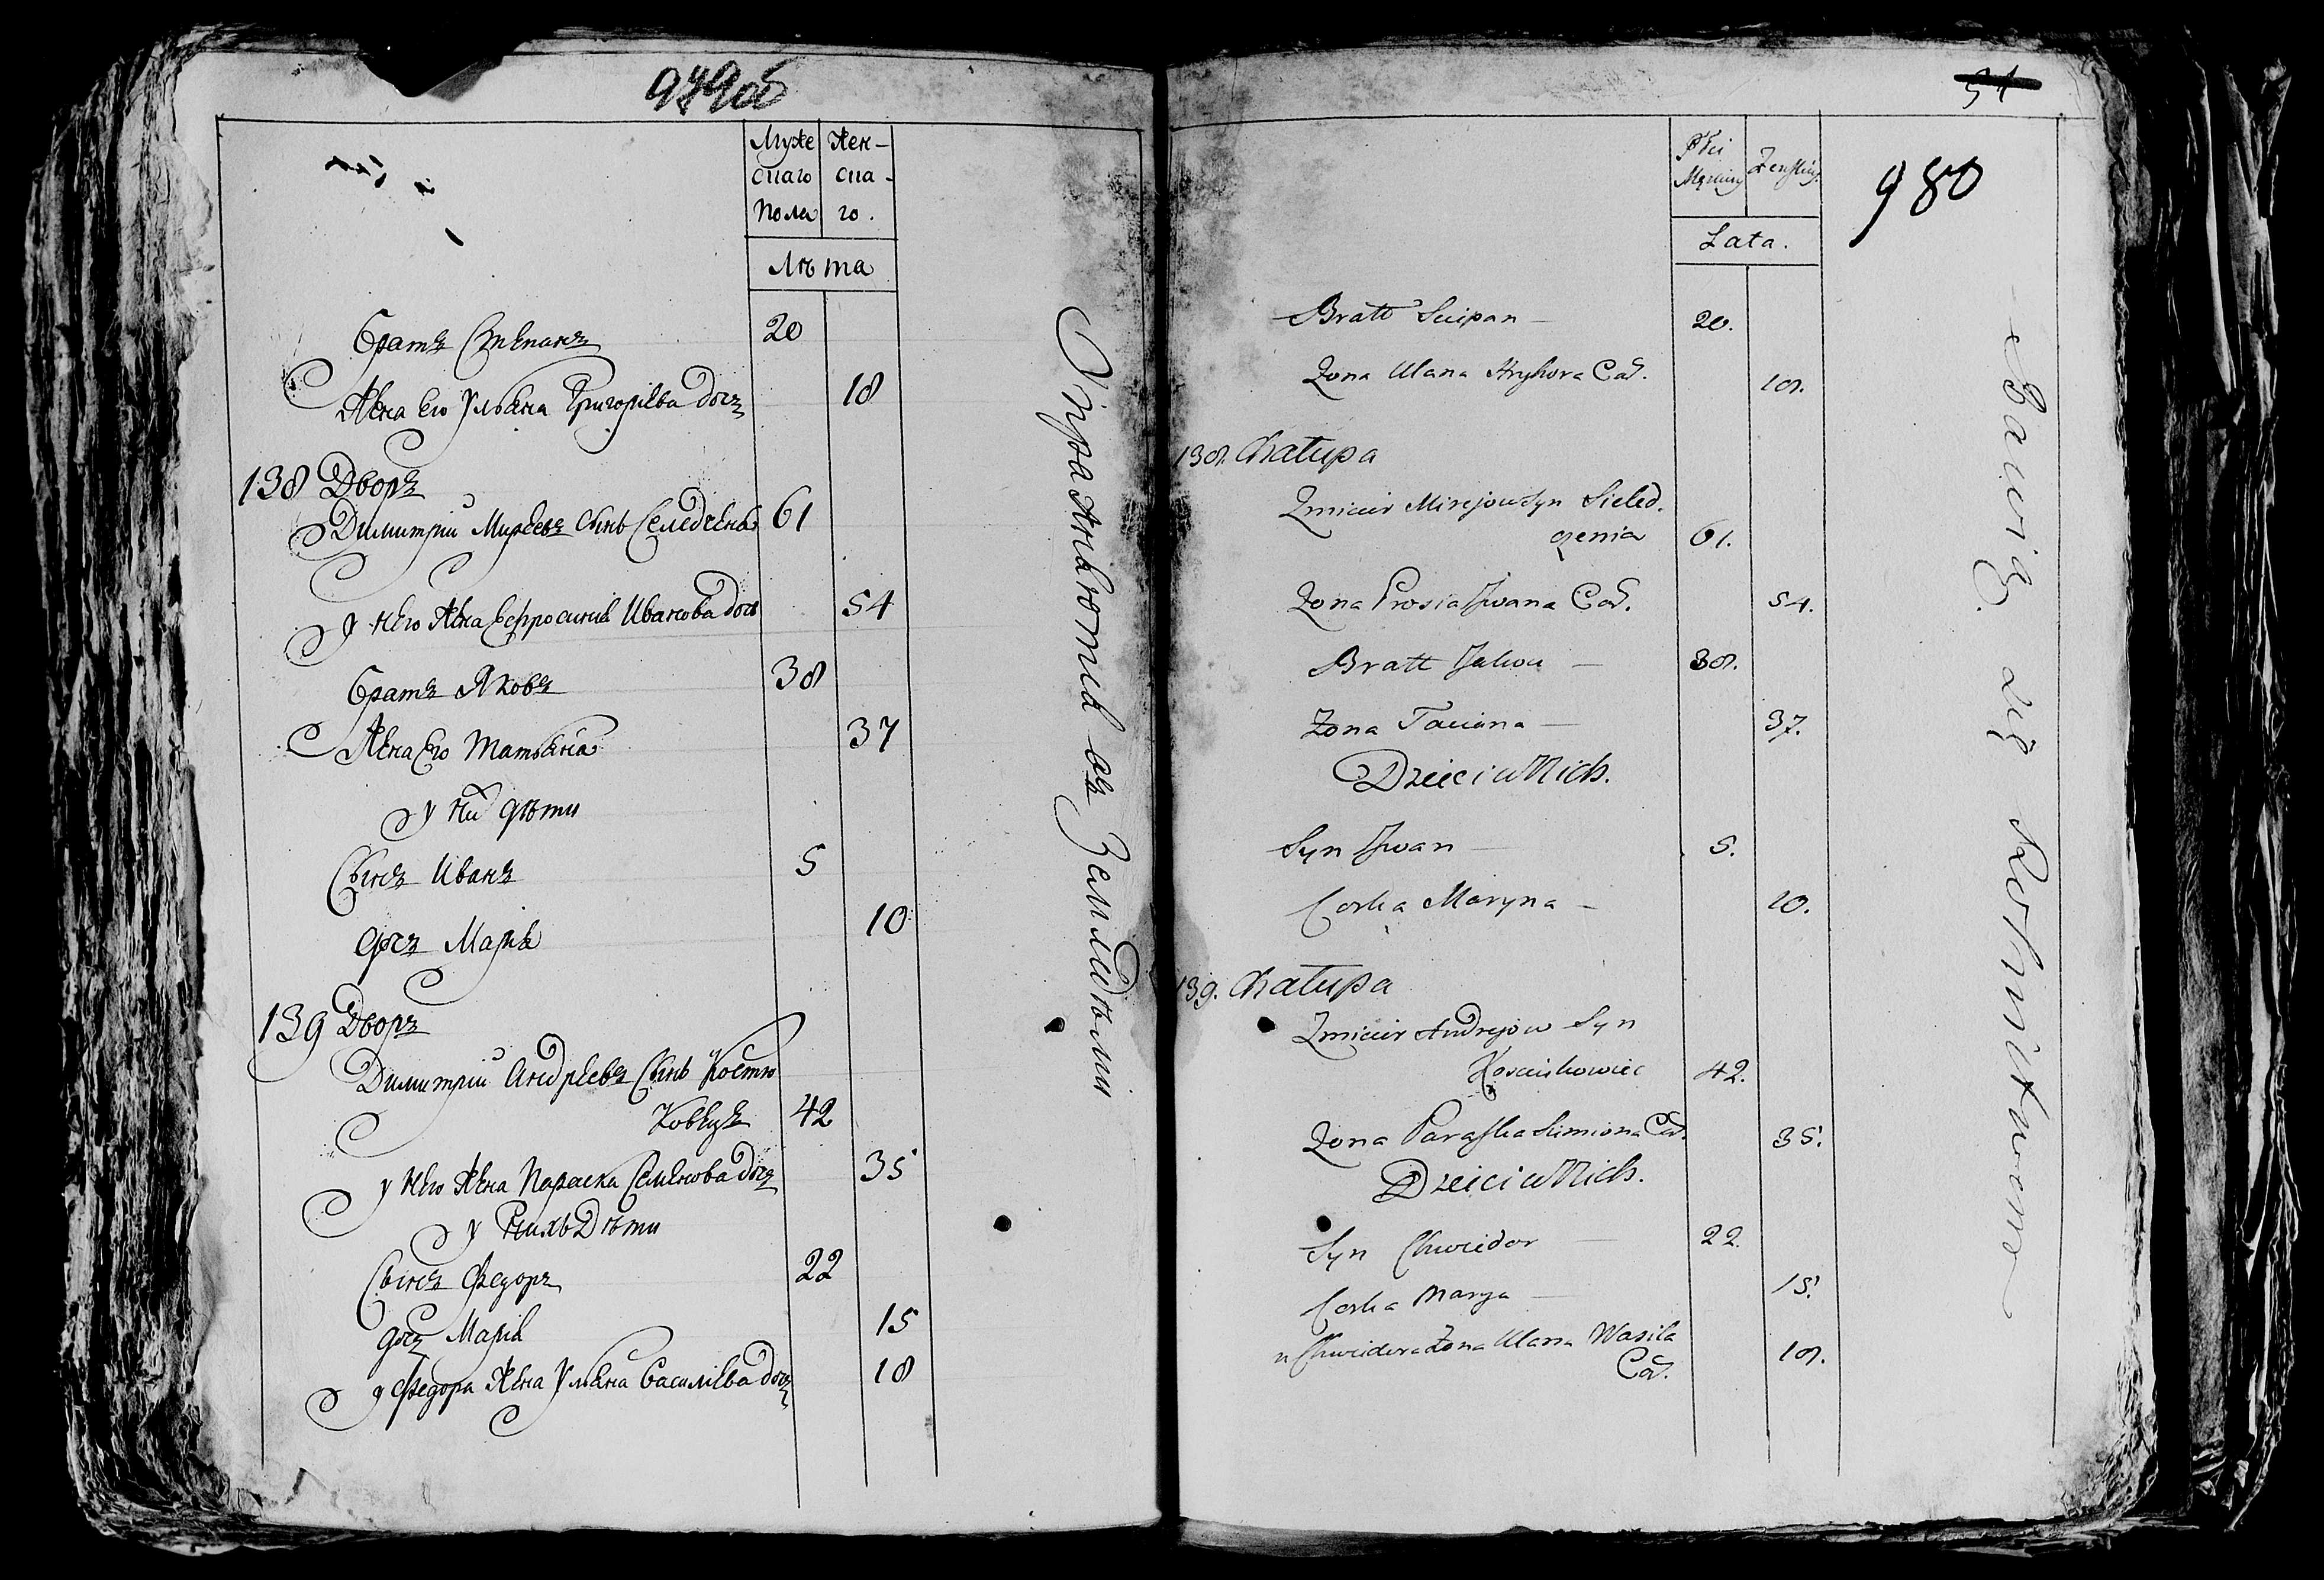 979об
Муже Жен-
скаго ска-
пола го.
Лѣта
Братъ Степанъ 20
Жена Его Ульяна Григорьева дочь 18
138 Дворъ
Димитрий Миреевъ Сынъ Селедченя 61
у него Жена Ефросиния Иванова дочь 54
Братъ Яковъ 38
Жена Его Татьяна 37
у ни дѣти
Сынъ Иванъ 5
дочь Мария 10
139 Дворъ
Димитрий Андреевъ Сынъ Костю
Ковецъ 42
у него Жена Параска Семенова дочь 35
у нихъ Дѣти
Сынъ Федоръ 22
дочь Мария 15
у Федора Жена Ульяна Васильева дочь 18
Упражняются въ Земледѣлии
51
980
Płci
Męskiey Zenskiey
Lata.
Bratt Sciepan — 20.
Zona Ulana Hryhora Cor. 18.
138. Chałupa
Zmicier Mirejow Syn Sieled.
czenia 61.
Zona Prosia Jwana Cor. 54.
Bratt Jakow — 38.
Zona Taciana — 37.
Dzieci u Nich.
Syn Jwan — 5.
Corka Maryna — 10.
139. Chałupa
Zmicier Andrejow Syn
Kosciukowiec 42.
Zona Paraska Simiona Cor. 35.
Dzieci u Nich.
Syn Chwiedor — 22.
Corka Marya — 15.
u Chwiedora Zona Ulana Wasila
Cor. 18.
Bawią się Rolnictwem